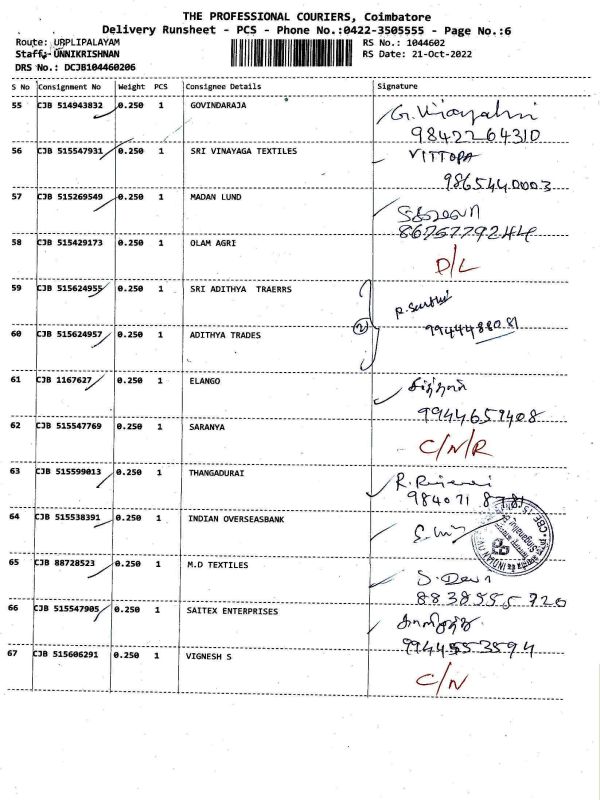 THE PROFESSIONAL COURIERS, Coimbatore
Delivery Runsheet - PCS - Phone No.:0422-3505555 - Page No.:6
Route: UPPLIPALAYAM RS No.: 1044602
Staff: UNNIKRISHNAN RS Date: 21-Oct-2022
DRS No.: DCJB104460206
S No Consignment No Weight PCS Consignee Details Signature
55 CJB 514943832 0.250 1 GOVINDARAJA
9842264310
56 CJB 515547931 0.250 1 SRI VINAYAGA TEXTILES VITTOPA
9865440003
57 CJB 515269549 0.250 1 MADAN LUND
8675779244
58 CJB 515429173 0.250 1 OLAM AGRI
D/L
59 CJB 515624955 0.250 1 SRI ADITHYA TRAERRS
2 9944488081
60 CJB 515624957 0.250 1 ADITHYA TRADES
61 CJB 1167627 0.250 1 ELANGO
9944659408
62 CJB 515547769 0.250 1 SARANYA
C/N/R
63 CJB 515599013 0.250 1 THANGADURAI
984071
64 CJB 515538391 0.250 1 INDIAN OVERSEASBANK
65 CJB 88728523 0.250 1 M.D TEXTILES
S. Devi
8838555720
66 CJB 515547905 0.250 1 SAITEX ENTERPRISES
67 CJB 515606291 0.250 1 VIGNESH S
C/N